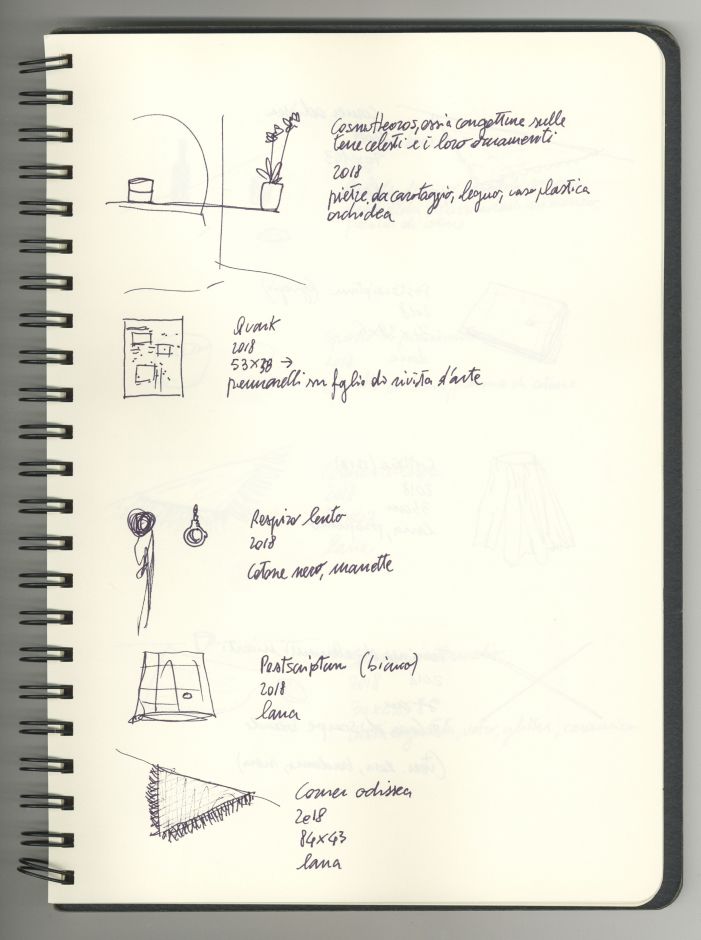 Cosmotheoros, ossia congetture sulle
terre celesti e i loro ornamenti
2018
pietre da carotaggio, legno, vaso plastica
orchidea
Quark
2018
53x38 →
pennarelli su foglio di rivista d'arte
Respiro lento
2018
Cotone nero, manette
Postscriptum (bianco)
2018
lana
Corner odissea
2018
84x43
lana